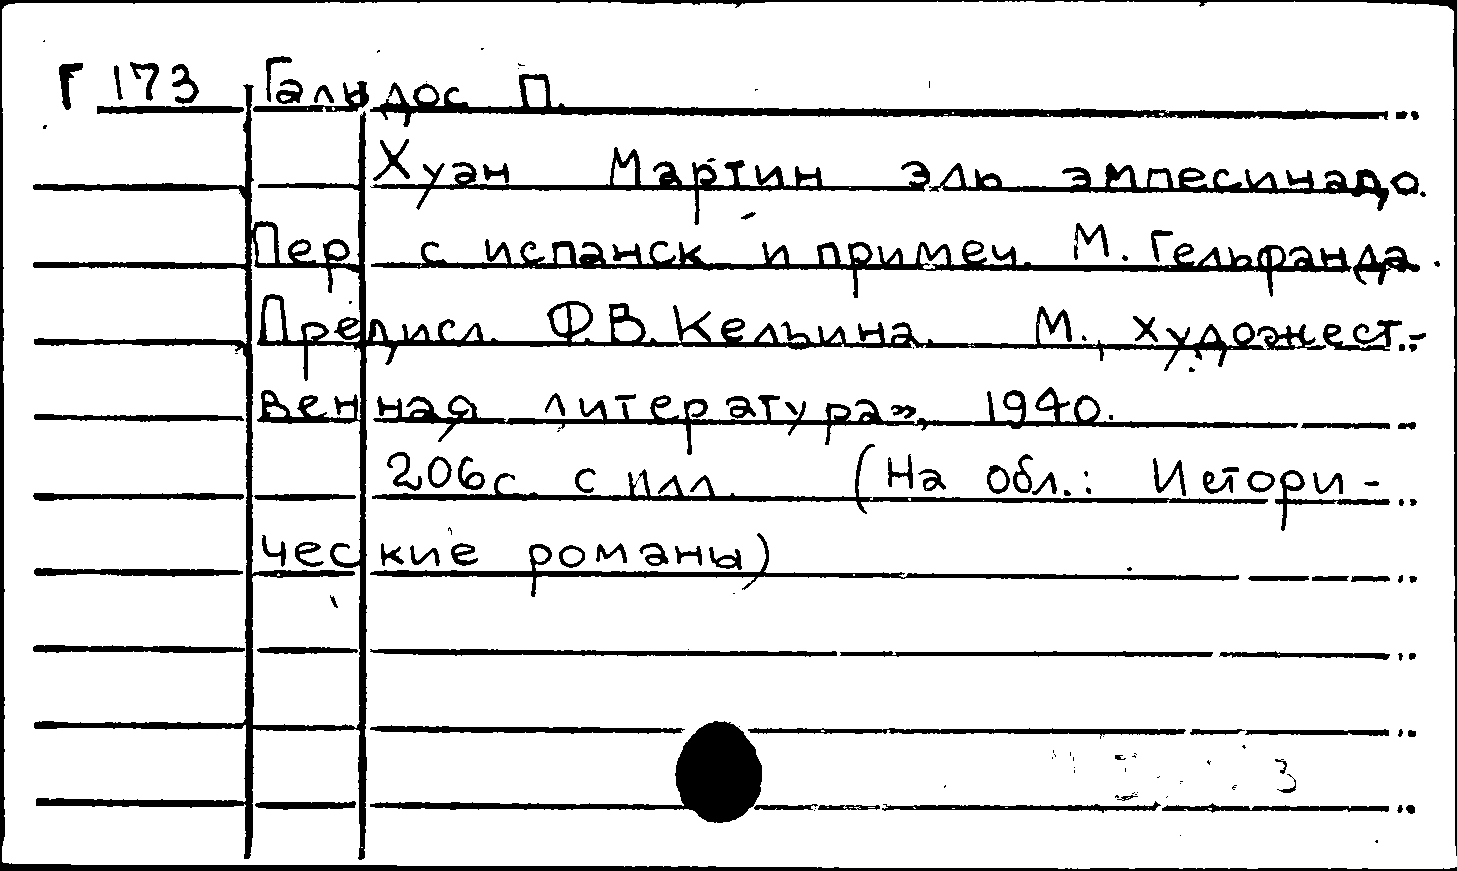 Г 173 Гальдос П.
Хуан Мартин эль эмпесинадо.
Пер. с испанск. и примеч. М. Гельфанда.
Предисл. Ф.В. Кельина. М., художест-
венная литература», 1940.
206с. с илл. (На обл.: Истори-
ческие романы)